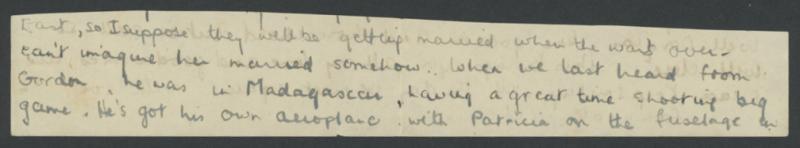 East, so I suppose they will be getting married when the war's over -
can't imagine her married somehow. When we last heard from
Gordon, he was in Madagascar, having a great time shooting big
game. He's got his own aeroplane with Patricia on the fuselage in